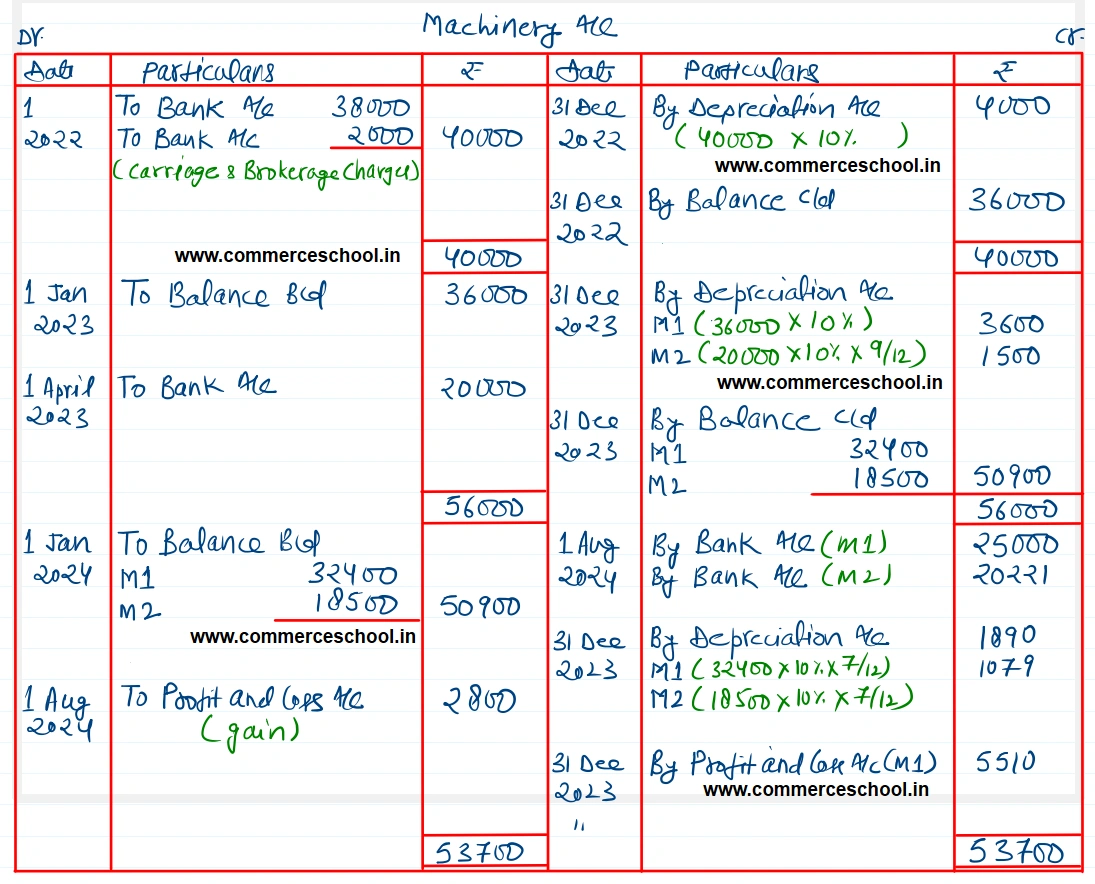 Machinery A/c
Dr.
Cr.
Date Particulars ₹ Date Particulars ₹
1 To Bank A/c 38000 31 Dec By Depreciation A/c 4000
2022 To Bank A/c 2000 40000 2022 (40000 x 10% )
(Carriage & Brokerage Charges) www.commerceschool.in
31 Dec By Balance c/d 36000
2022
www.commerceschool.in 40000 40000
1 Jan To Balance B/d 36000 31 Dec By Depreciation A/c
2023 2023 M1 (36000 x 10%) 3600
M2 (20000 x 10% x 9/12) 1500
1 April To Bank A/c 20000 www.commerceschool.in
2023 31 Dec By Balance c/d
2023 M1 32400
M2 18500 50900
56000 56000
1 Jan To Balance B/d 1 Aug By Bank A/c (M1) 25000
2024 M1 32400 2024 By Bank A/c (M2) 20221
M2 18500 50900
www.commerceschool.in 31 Dec By Depreciation A/c 1890
2023 M1 (32400 x 10% x 7/12) 1079
1 Aug To Profit and Loss A/c 2800 M2 (18500 x 10% x 7/12)
2024 (gain)
31 Dec By Profit and Loss A/c (M1) 5510
2023 www.commerceschool.in
"
53700 53700